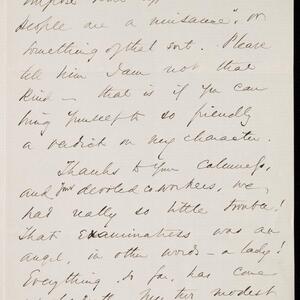 people are a nuisance", or
something of that sort. Please
tell him I am not that
kind — that is if you can
bring yourself to so friendly
a verdict on my character.
Thanks to your calmness,
and your devoted coworkers, we
had really so little trouble!
That examinatress was an
angel, in other words — a lady!
Everything so far, has come
modest